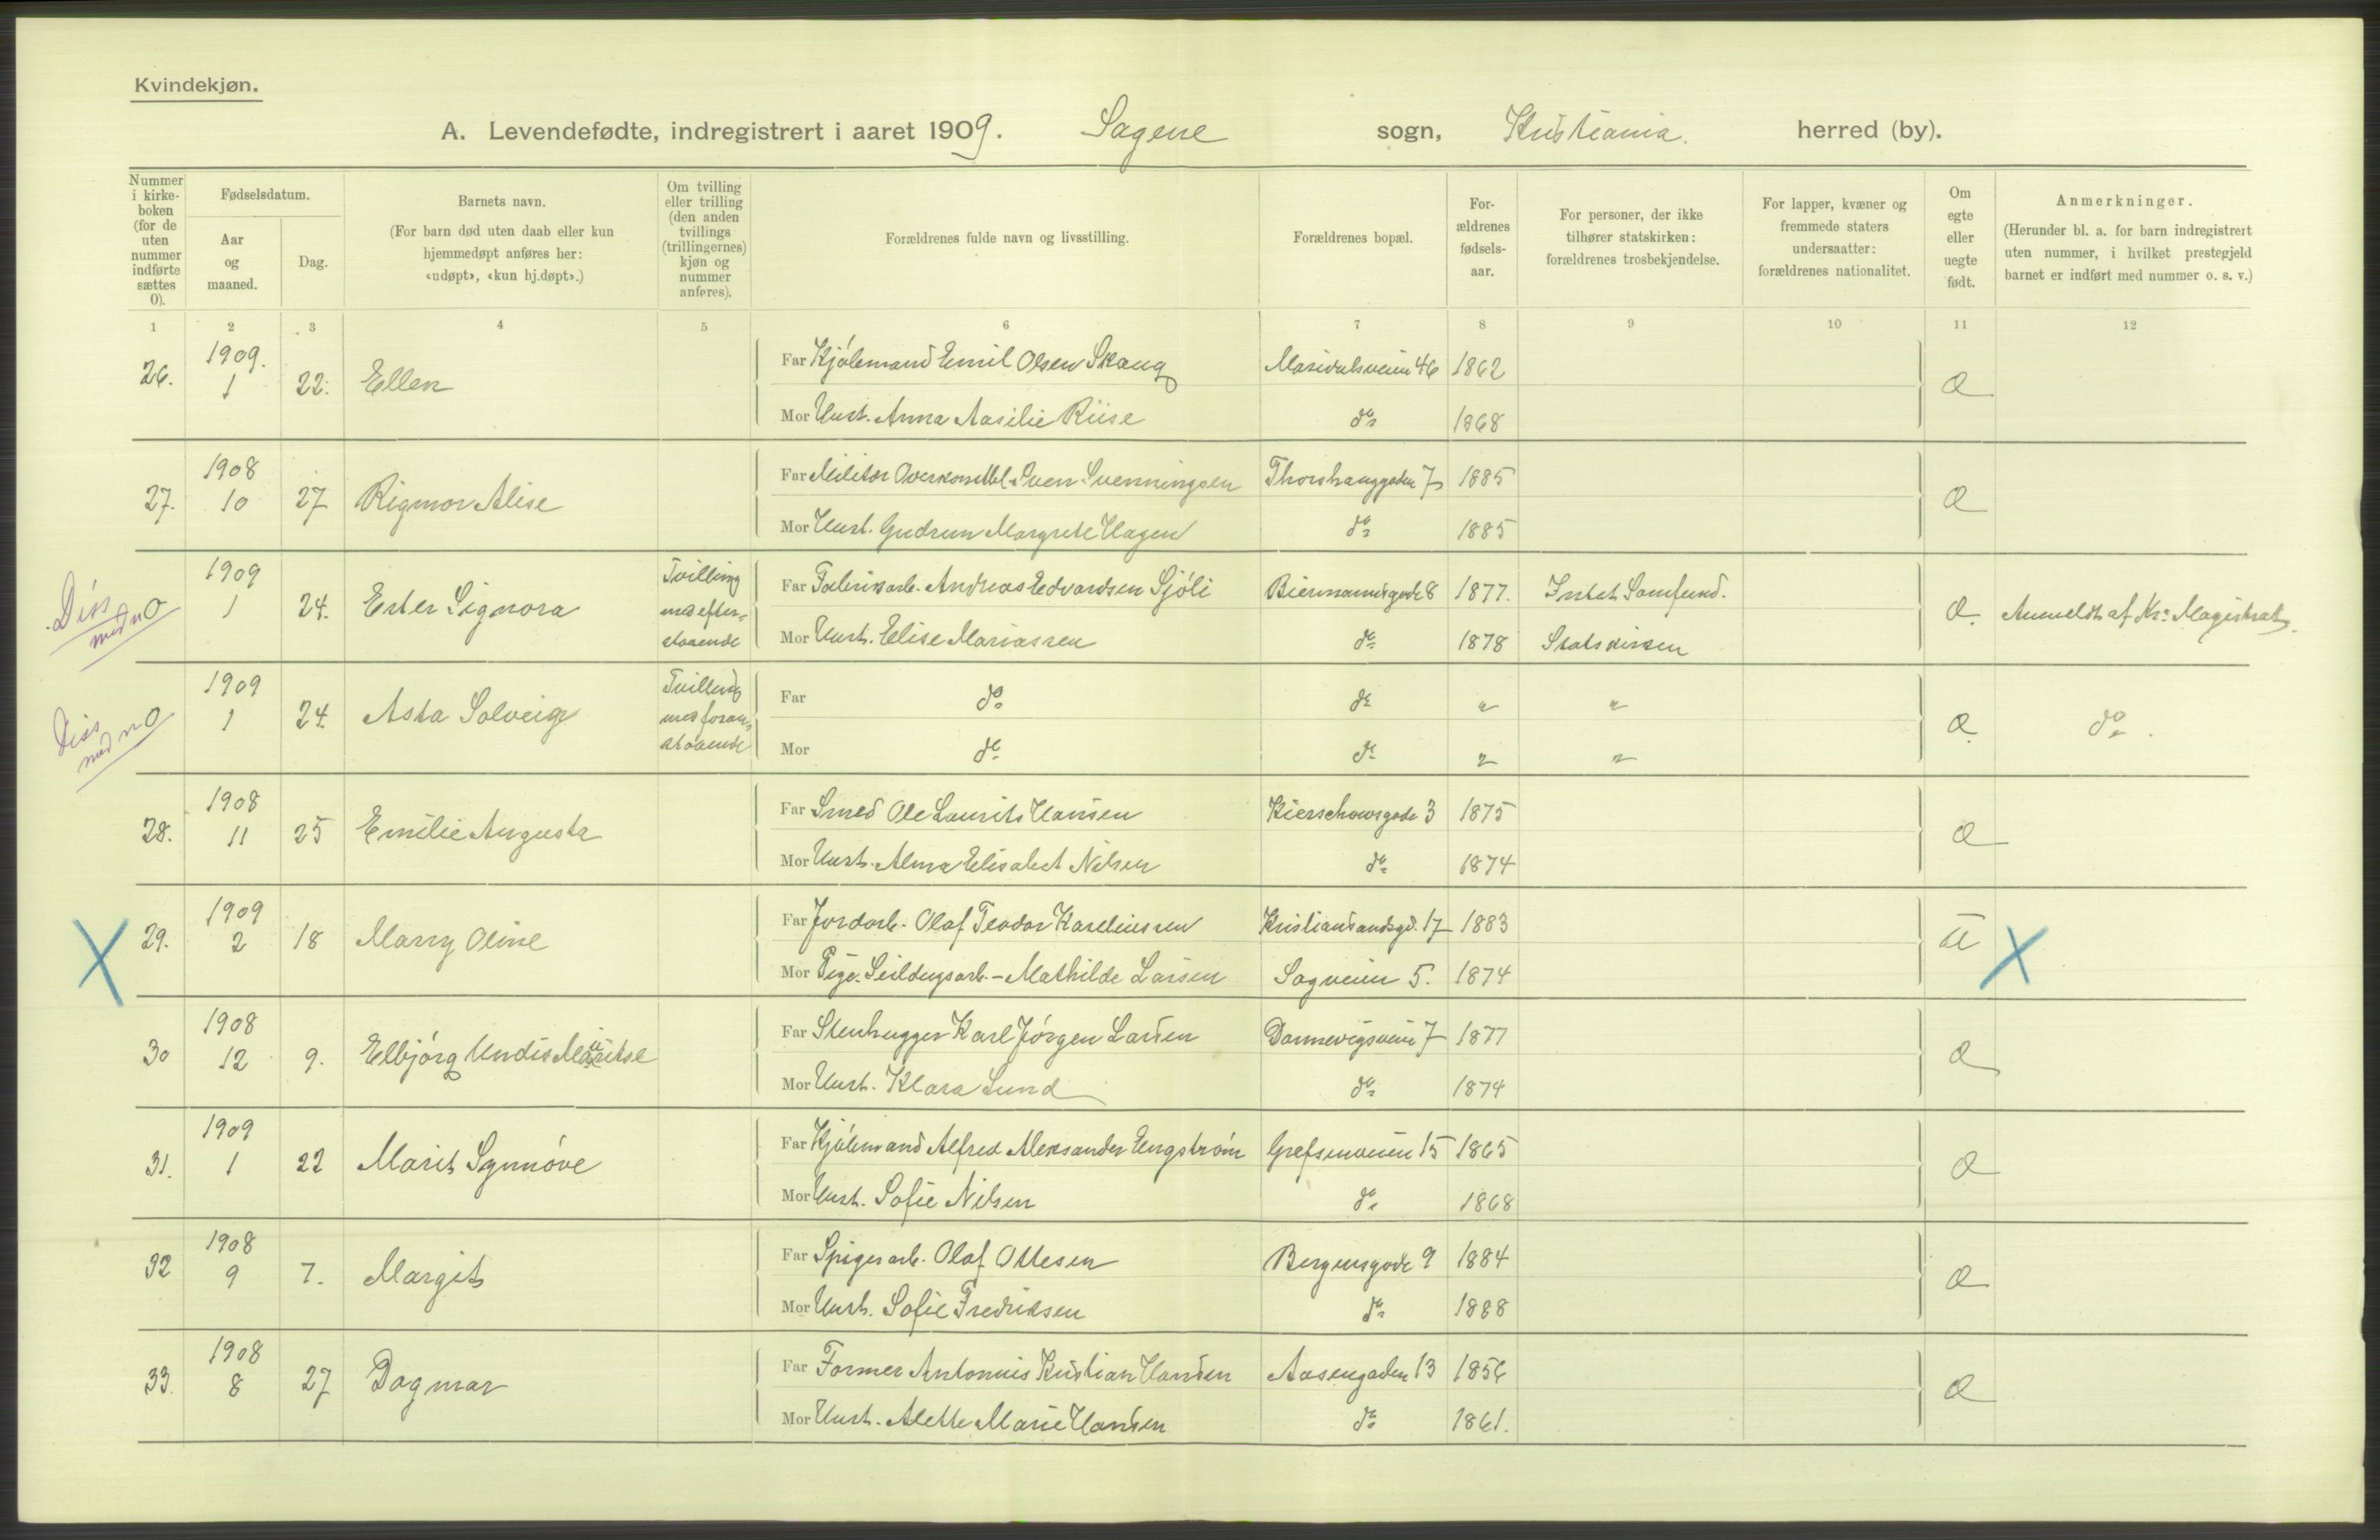 Kvindekjøn.
A. Levendefødte, indregistrert i aaret 1909. Sagene sogn, Kristiania. herred (by).
Nummer i kirkeboken (for de uten nummer indførte sættes 0).
Fødselsdatum.
Aar og maaned.
Dag.
Barnets navn.
(For barn død uten daab eller kun hjemmedøpt anføres her: «udøpt», «kun hj.døpt».)
Om tvilling eller trilling (den anden tvillings (trillingernes) kjøn og nummer anføres).
Forældrenes fulde navn og livsstilling.
Forældrenes bopæl.
Forældrenes fødselsaar.
For personer, der ikke tilhører statskirken: forældrenes trosbekjendelse.
For lapper, kvæner og fremmede staters undersaatter: forældrenes nationalitet.
Om egte eller uegte født.
Anmerkninger.
(Herunder bl. a. for barn indregistrert uten nummer, i hvilket prestegjeld barnet er indført med nummer o. s. v.)
1 2 3 4 5 6 7 8 9 10 11 12
26. 1909. 1 22. Ellen Far Kjølemand Emil Olsen Skaug Maridalsveien 46 1862 Æ
Mor Hust. Anna Aasilie Riise do 1868
27. 1908 10 27 Rigmor Alise Far Militær Overkonstbl. Sven Svenningsen Thorshauggaden 7 1885 Æ
Mor Hust. Gudrun Margrete Hagen do 1885
Diss med no 1909 1 24. Ester Signora Tvilling med efterstaaende Far Fabrikarb. Andreas Edvardsen Sjøli Biermannsgade 8 1877. Intet Samfund. Æ. Anmeldt af Kr. Magistrat.
Mor Hust. Elise Mariassen do 1878 Statskirken
Diss med no 1909 1 24. Asta Solveig Tvilling med foranstaaende Far do do " " Æ. do.
Mor do do " "
28. 1908 11 25 Emilie Augusta Far Smed Ole Laurits Hansen Kierschowsgade 3 1875 Æ
Mor Hust. Alma Elisabet Nilsen do 1874
X 29. 1909 2 18 Marry Oline Far Jordarb. Olaf Teodor Kareliussen Kristiansandsgd. 17 1883 U X
Mor Pige. Seildugsarb. - Mathilde Larsen Sagveien 5. 1874
30 1908 12 9. Elbjørg Undis Far Stenhugger Karl Jørgen Larsen Dannevigsveien 7 1877 Æ
Mor Hust. Klara Lund do 1874
31. 1909 1 22 Marit Synnøve Far Kjølemand Alfred Aleksander Engstrøm Grefsenveien 15 1865 Æ
Mor Hust. Sofie Nilsen do 1868
32 1908 9 7. Margit Far Spigerarb. Olaf Ottesen Bergensgade 9 1884 Æ
Mor Hust. Sofie Fredriksen do 1888
33. 1908 8 27 Dagmar Far Former Antonius Kristian Hansen Aasengaden 13 1856 Æ
Mor Hust. Alette Marie Hansen do 1861.